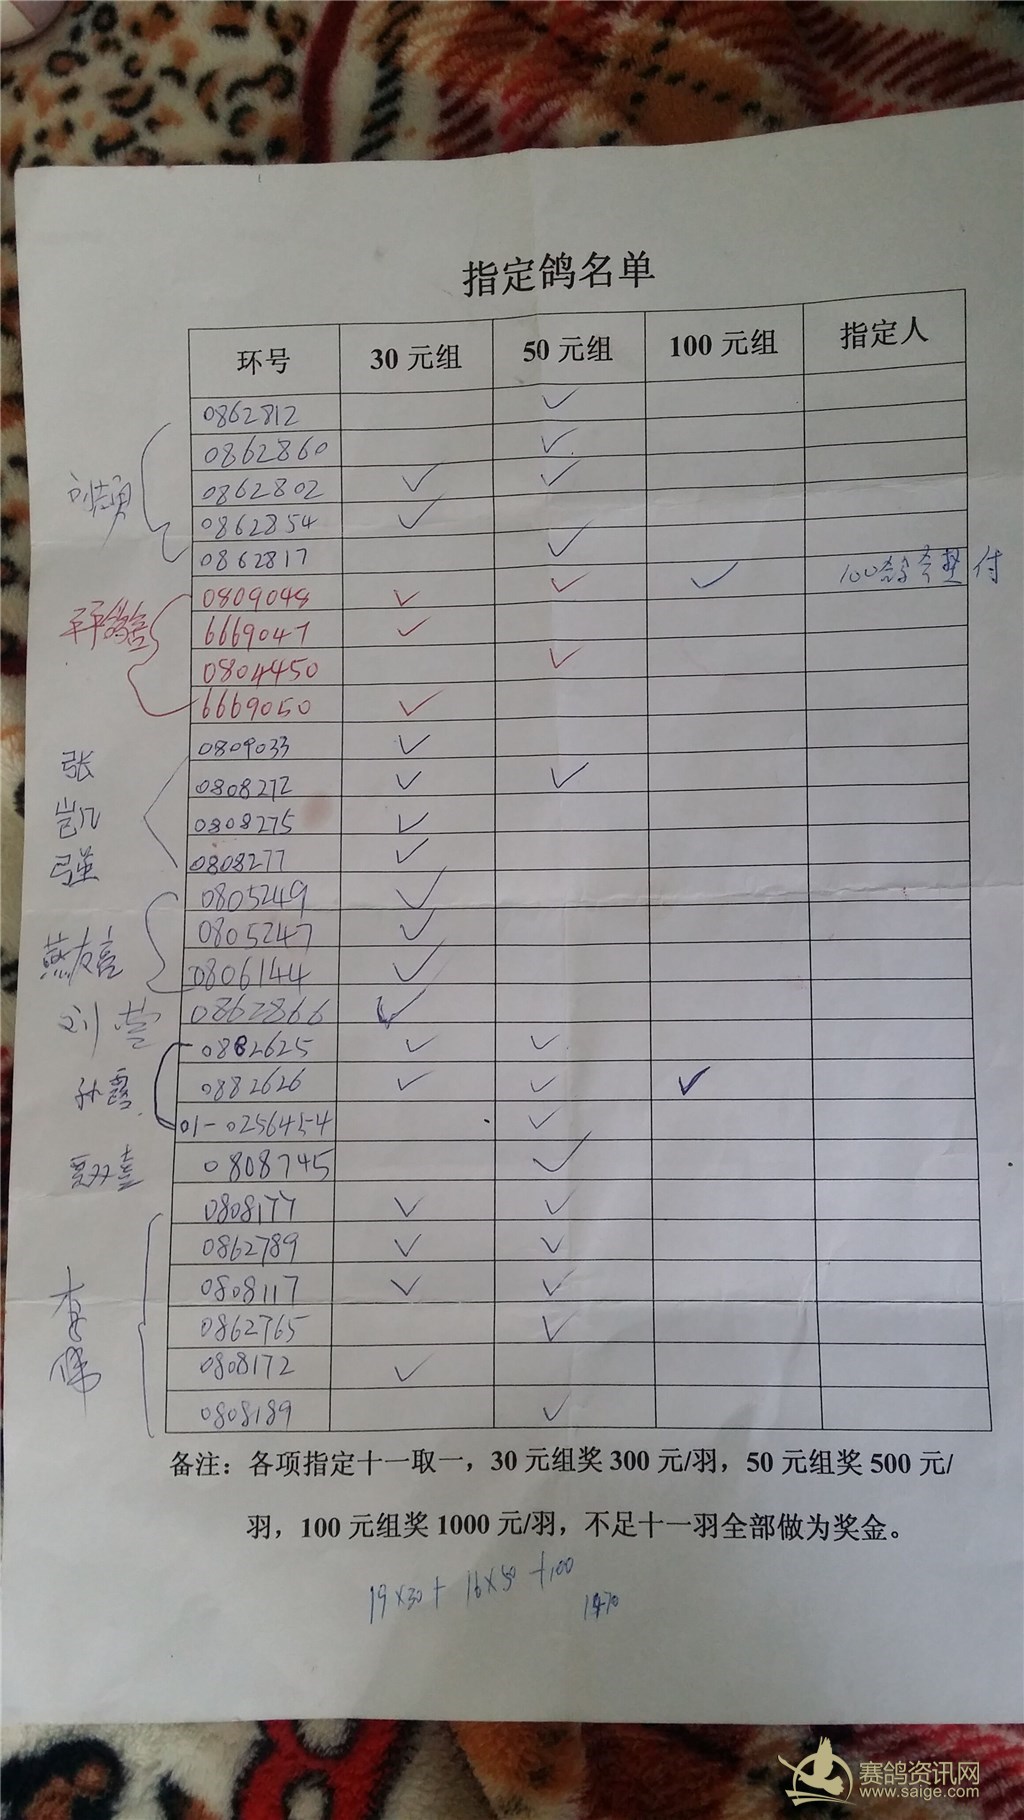 指定鸽名单
环号 30元组 50元组 100元组 指定人
0862812 ✓
0862860 ✓
0862802 ✓ ✓
刘颉
0862854 ✓
0862817 ✓
0809048 ✓ ✓ ✓ 100 垫付
6669047 ✓
0804450 ✓
6669050 ✓
0809033 ✓
张
0808272 ✓ ✓
岂凡
0808275 ✓
强
0808277 ✓
0805249 ✓
0805247 ✓
燕友亮
0806144 ✓
刘营 0862866 ✓
0882625 ✓ ✓
孙霞 0882626 ✓ ✓ ✓
01-0256454 ✓
贾双喜 0808745 ✓
0808177 ✓ ✓
0862789 ✓ ✓
0808117 ✓ ✓
李伟
0862765 ✓
0808172 ✓
0808189 ✓
备注：各项指定十一取一，30元组奖300元/羽，50元组奖500元/
羽，100元组奖1000元/羽，不足十一羽全部做为奖金。
19×30+ 16×50 +100
1470
赛鸽资讯网
www.saige.com